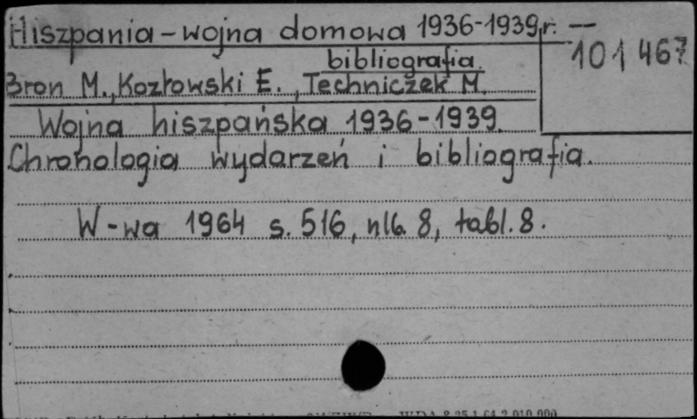 Hiszpania - wojna domowa 1936-1939 r. —
bibliografia.
101 467
Bron M., Kozłowski E., Techniczek M.
Wojna hiszpańska 1936-1939.
Chronologia wydarzeń i bibliografia.
W-wa 1964 s. 516, nlb. 8, tabl. 8.